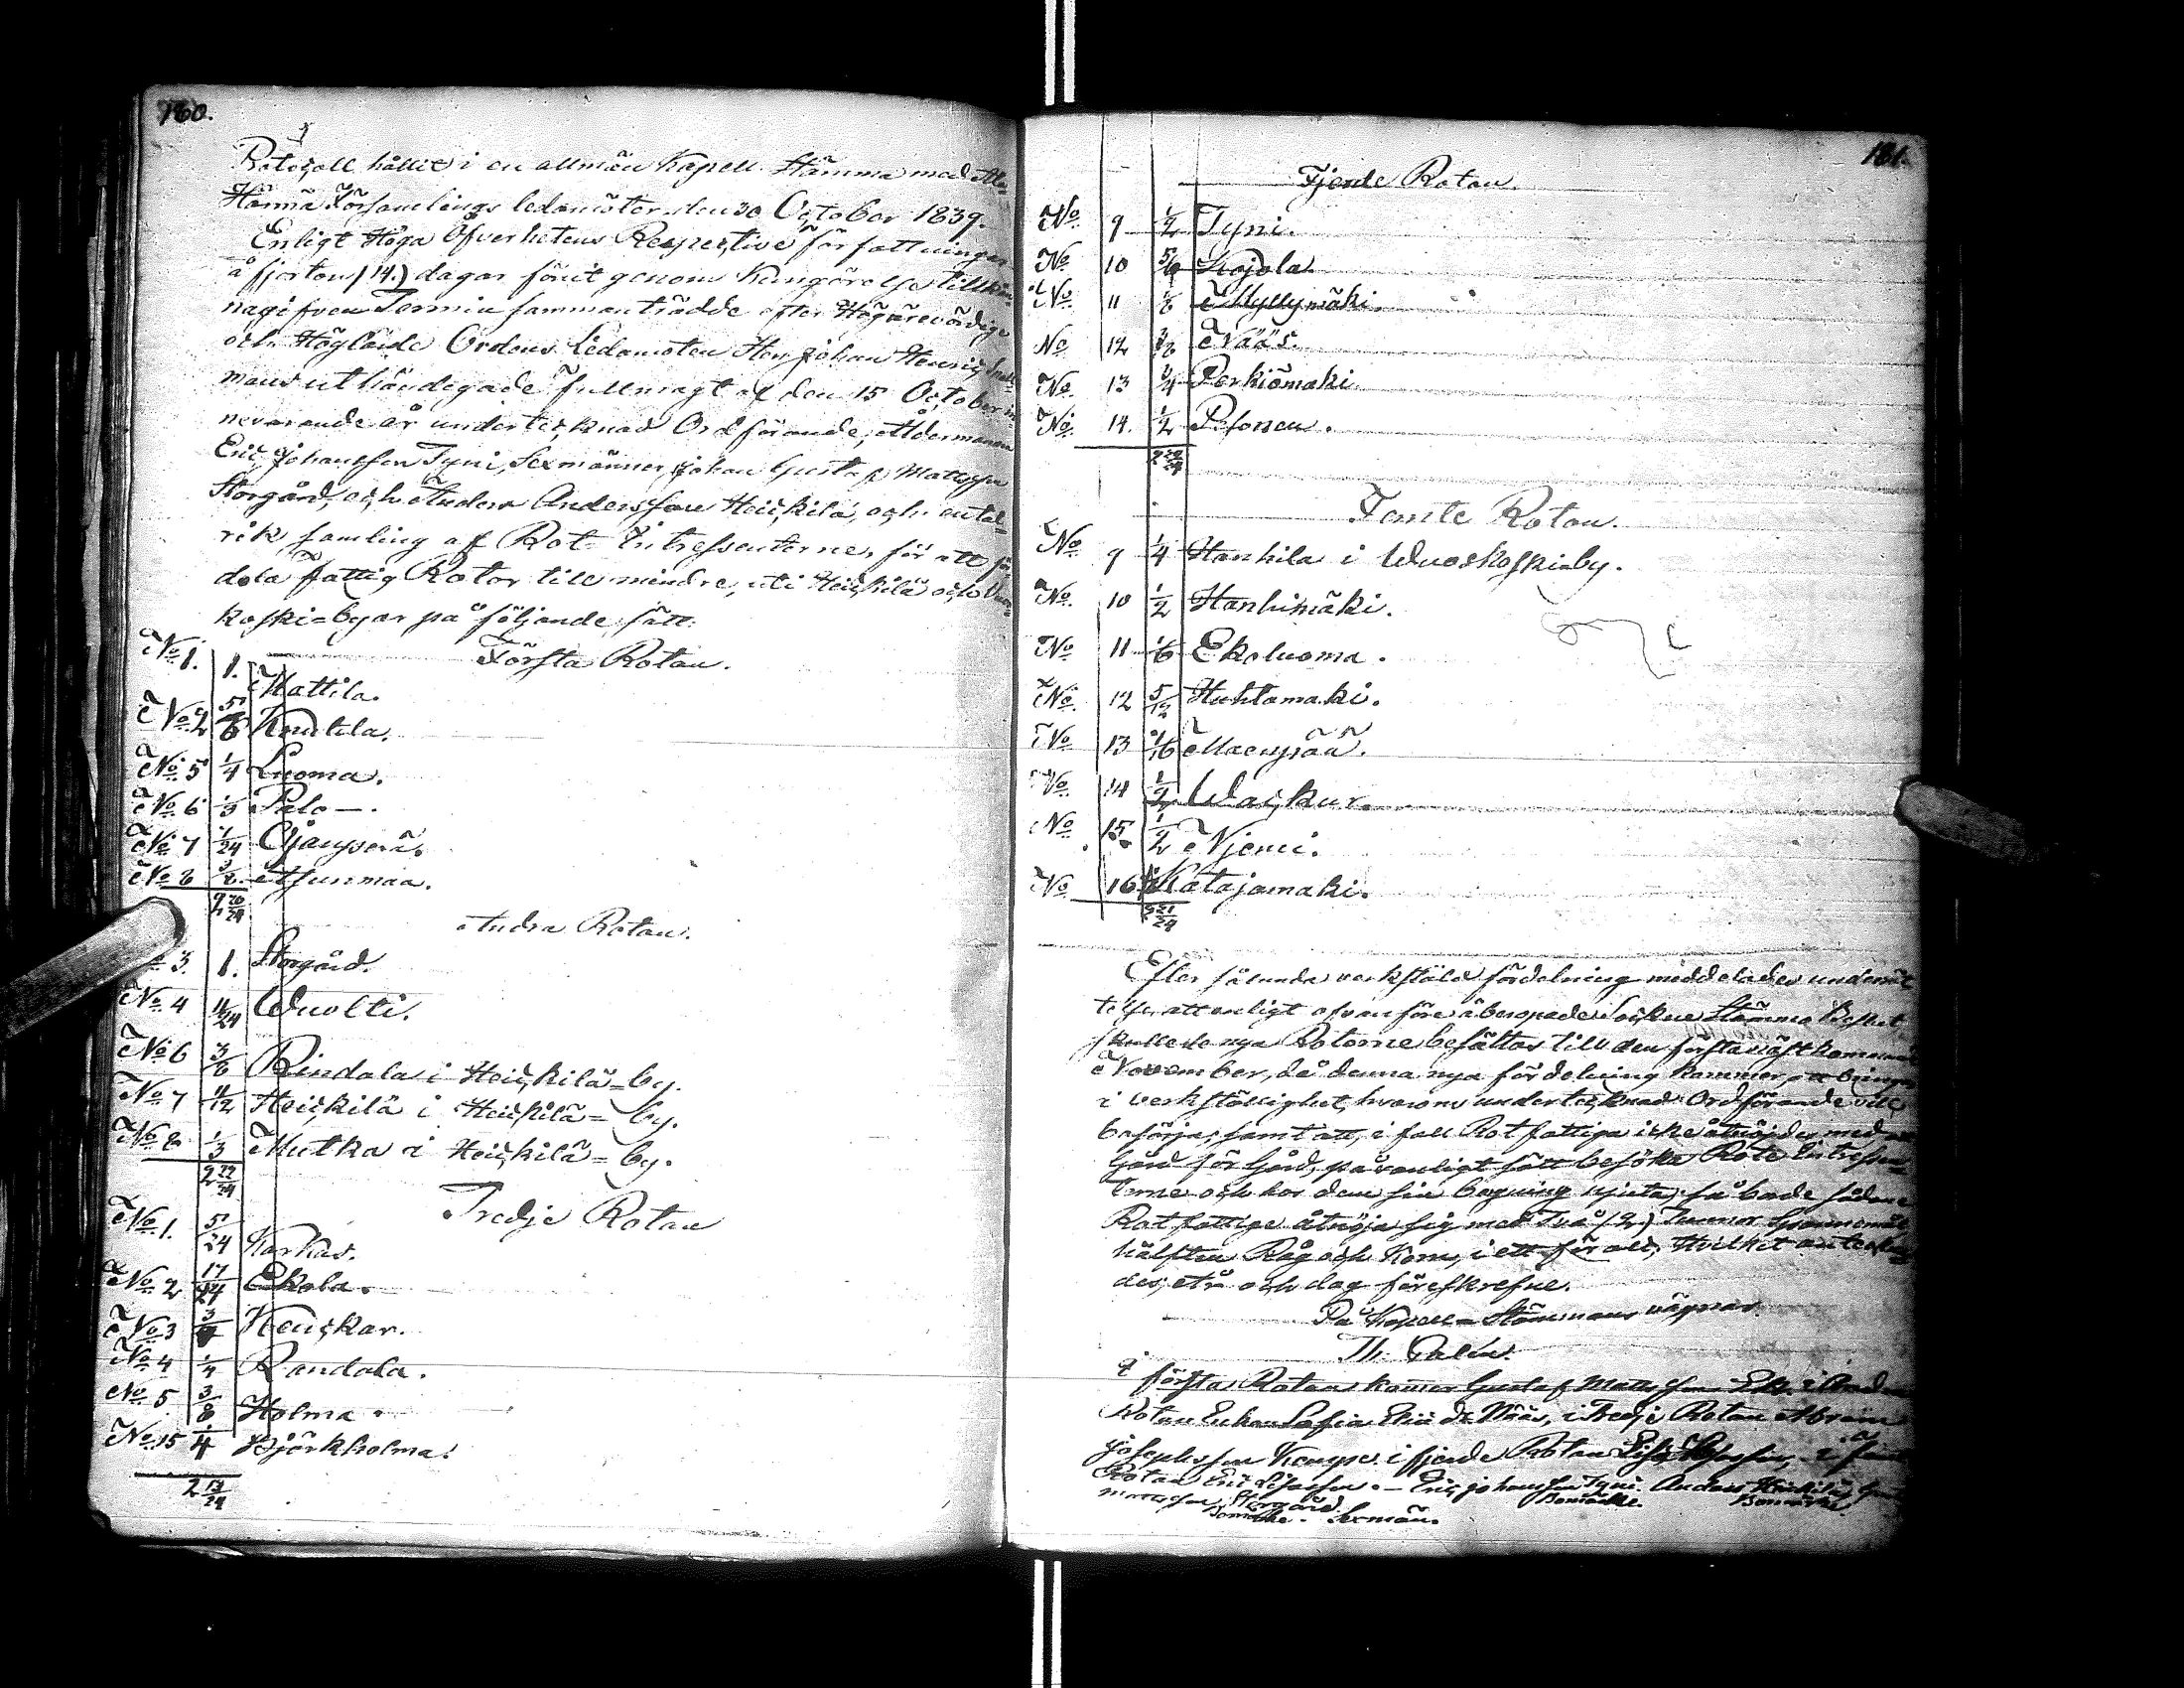 160.
Protocoll hållit i en allmän Kapell Stämma med Ala-
Härmä Församlings ledamöter den 30 October 1839.
Enligt Höga Öfverhetens Respective författningar
å fjorton (14.) dagar förut genom Kungörelse tillkän-
nagifven Termin sammanträdde efter Högärevördige
och Höglärde Ordens Ledamoten Herr Johan Henric
mans uthändigade fullmagt af den 15 October in-
nevarande år undertecknad Ordförande, Åldermannen
Eric Johansson Tyni, Sexmänner Johan Gustaf Mattsson
Storgård, och Anders Andersson Heickilä, och en tal-
rik samling af Rot-Intressenterne, för att för-
dela fattig Rotor till mindre, uti Heickilä och Vuos-
koski-byar på följande sätt.
Första Rotan.
No 1. 1. Mattila.
No 2 5/6 Knutila.
No 5 1/4 Luoma.
No 6 1/3 Palo—.
No 7 1/24 Ojanperä.
No 8 3/8 Asunmaa.
2 20/24
Andra Rotan.
No 3. 1. Storgård.
No 4 11/24 Wuolti.
No 6 3/6 Rindala i Heickilä=by.
No 7 11/12 Heickilä i Heickilä=by.
No 8 1/3 Mutka i Heickilä=by.
2 22/24
Tredje Rotan
No 1. 5/24 Karhus.
No 2 17/24 Ekola.
No 3 3/4 Heickar.
No 4 1/4 Randala.
No 5 3/8 Holma.
No 15 1/4 Björkholma.
2 13/24
161.
Fjerde Rotan.
No 9 1/2 Tyni.
No 10 5/6 Kojola.
No 11 1/8 Myllymäki.
No 12 Nääs.
No 13 3/4 Perkiömäki
No 14. 1/2 Pesonen.
2 22/24
Femte Rotan.
No 9 1/4 Hanhila i Wuoskoski=by.
No 10 1/2 Hanhimäki.
No 11 1/6 Ekoluoma.
No 12 5/12 Huhtamäki.
No 13 Maenpää.
No 14 1/2 Wackur.
No 15 1/2 Njemi.
No 16 Katajamäki.
21/24
Efter sålunda verkstäld fördelning meddelades underrät-
telse, att enligt ofvanföre åberopade Socken Stämmo Beslut,
skulle de nya Rotorne besättas till den första nästkommande
November, då denna nya fördelning kommer att bringas
i verkställighet, hvarom undertecknad Ordförande vill
besörja; samt att, i fall Rotfattiga icke åtnöjdes med att
Gård för Gård, på vanligt sätt besöka Rote Intressen-
terne och hos dem sin bergning njuta, så borde sådane
Rotfattige åtnöja sig med Två (2) Tunnor Spannemål
hälften Råg och Korn, i ett för alt; Hvilket antecknas-
des; År och dag föreskrefne.
På Kapell-Stämmans vägnar
Th. Palén.
I första Rotan kommer Gustaf Mattsson i Andra
Rotan Enkan Safia Nääs, i Tredje Rotan Abram
Josephsson Kempe, i fjerde Rotan Lisa i femte
Rotan Eric — Eric Johansson Tyni. Anders Heickilä
Bomärke. Bomärke.
Mattsson Storgård.
Bomärke. Sexmän.